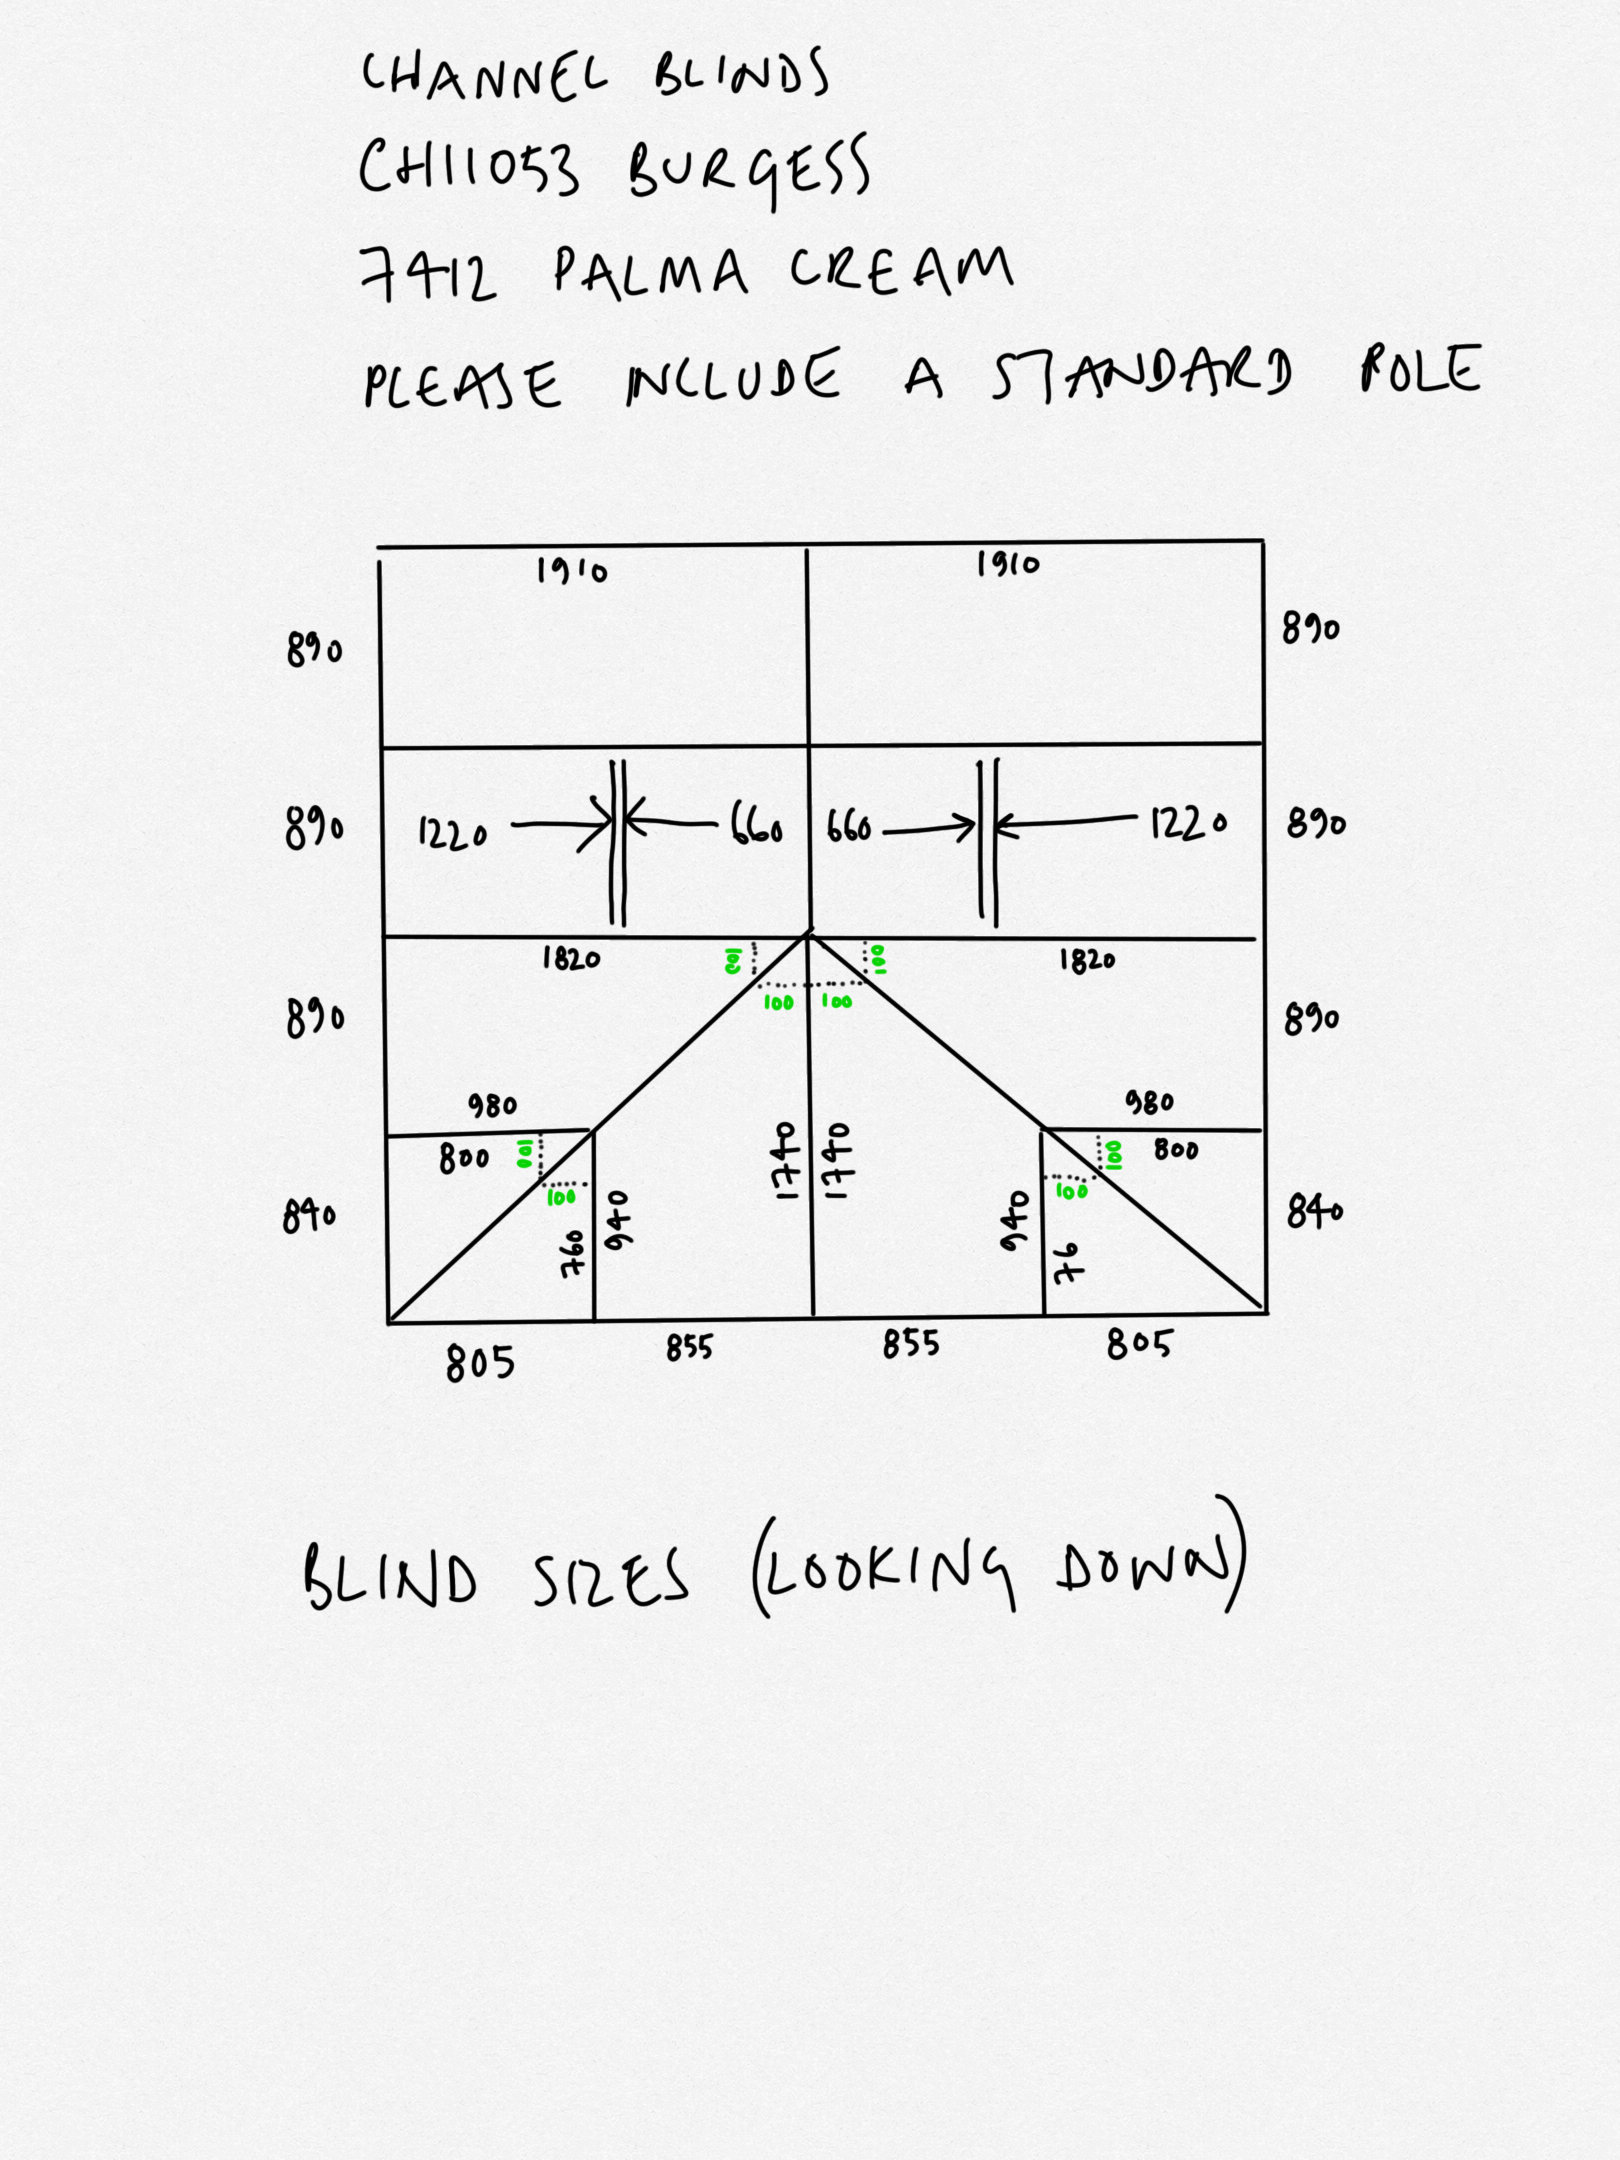 CHANNEL BLINDS
CH11053 BURGESS
7412 PALMA CREAM
PLEASE INCLUDE A STANDARD POLE
1910 1910
890 890
890 1220 660 660 1220 890
1820 100 100 1820
100 100
890 890
980 980
800 100 1740 1740 100 800
100 100
840 760 940 940 76 840
805 855 855 805
BLIND SIZES (LOOKING DOWN)